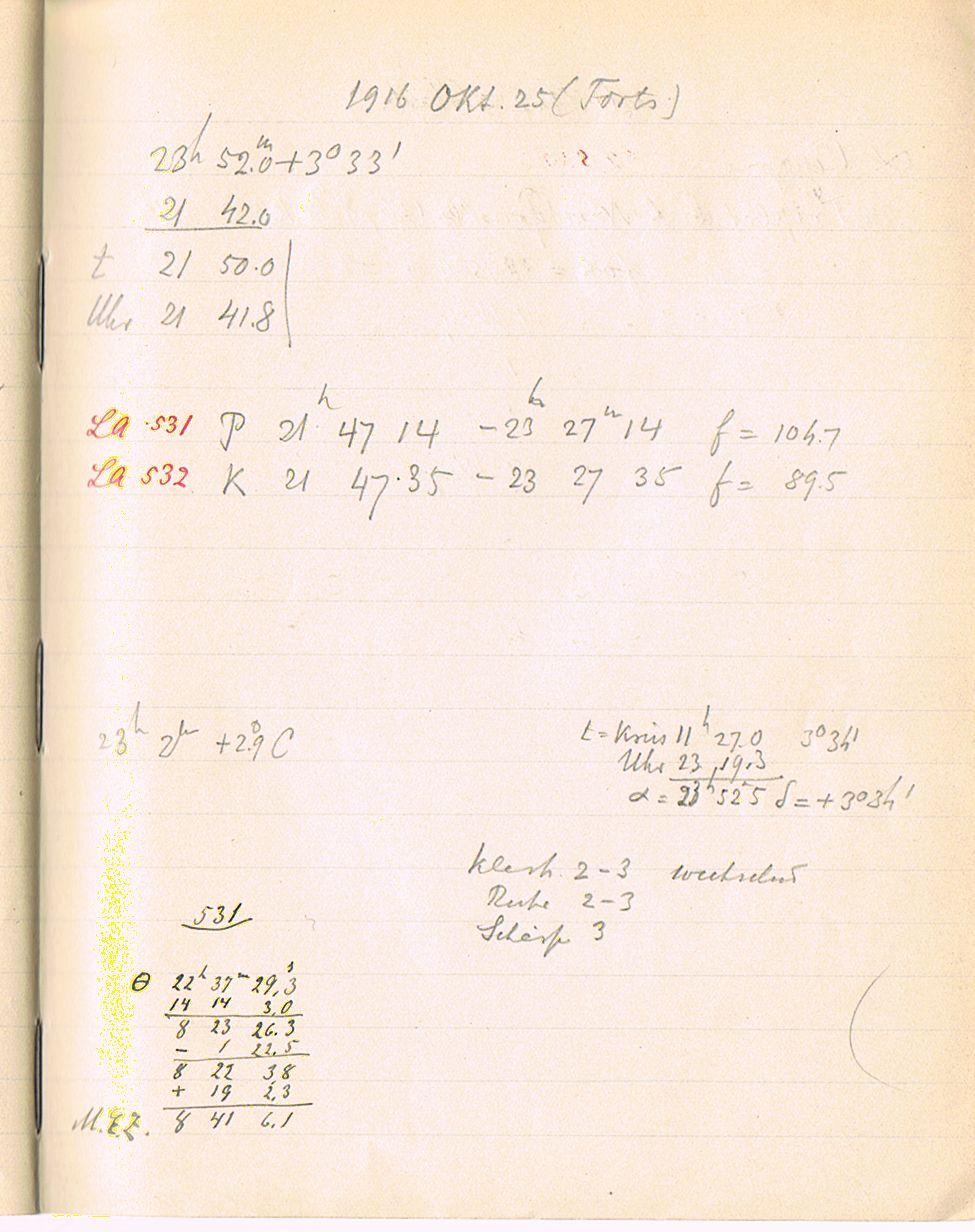 1916 Okt. 25 (Forts)
23h 52.m0 + 3° 33'
21 42.0
t 21 50.0
Uhr 21 41.8
La 531 P 21h 47 14 – 23h 27m 14 f = 104.7
La 532 K 21 47.35 – 23 27 35 f = 89.5
23h 2m +2.°9 C
t = Kreis 11h 27.0 3° 34'
Uhr 23 19.3
α = 23h 52.5 δ = + 3° 34'
Klarh. 2–3 wechselnd
Ruhe 2–3
Schärfe 3
531
θ 22h 37m 29,s3
14 14 3,0
8 23 26.3
– 1 22.5
8 22 3.8
+ 19 2,3
M.E.Z. 8 41 6.1